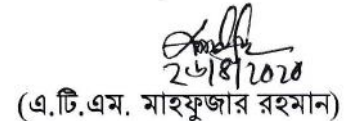 ২৬/৪/২০২০
(এ.টি.এম. মাহফুজার রহমান)